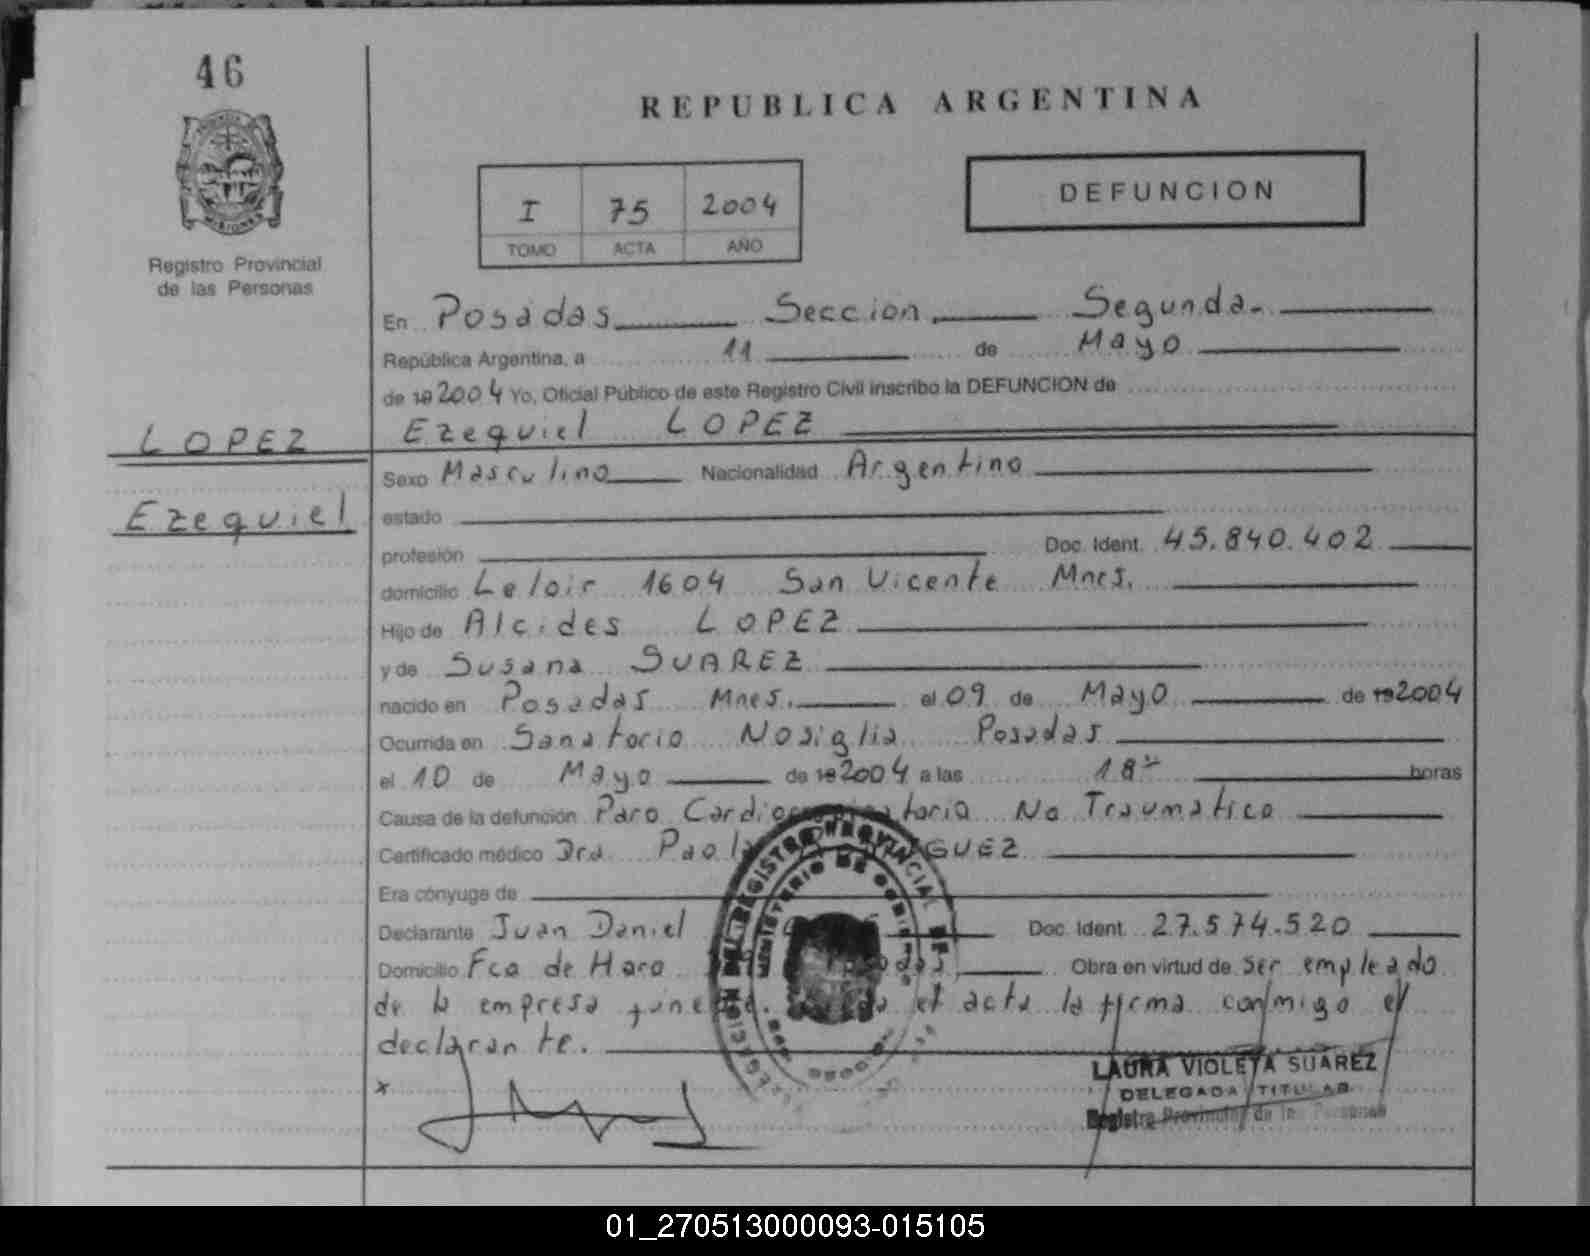 46
REPUBLICA ARGENTINA
Registro Provincial
de las Personas
I 75 2004
TOMO ACTA AÑO
DEFUNCION
En Posadas Seccion Segunda.
República Argentina, a 11 de Mayo
de 19 2004 Yo, Oficial Público de este Registro Civil inscribo la DEFUNCION de
LOPEZ
Ezequiel LOPEZ
Ezequiel
Sexo Masculino Nacionalidad Argentino
estado
profesión Doc. Ident. 45.840.402
domicilio Leloir 1604 San Vicente Mnes.
Hijo de Alcides LOPEZ
y de Susana SUAREZ
nacido en Posadas Mnes. el 09 de Mayo de 19 2004
Ocurrida en Sanatorio Nosiglia Posadas
el 10 de Mayo de 19 2004 a las 18 horas
Causa de la defunción Paro No Traumatico
Certificado médico Dra.
Era cónyuge de
Declarante Juan Daniel Doc. Ident. 27.574.520
Domicilio Fco de Haro Obra en virtud de ser empleado
de la empresa el acta la firma conmigo el
declarante.
x
LAURA VIOLETA SUAREZ
DELEGADA TITULAR
Registro Provincial de las Personas
01_270513000093-015105